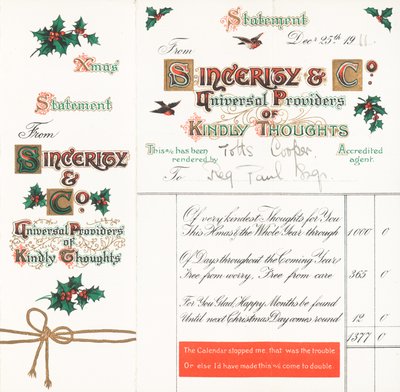 Xmas
Statement
From
Sincerity
&
Co
Universal Providers
of
Kindly Thoughts
Statement
Dec 25th 1911
From
Sincerity & Co.
Universal Providers
of
Kindly Thoughts
This a/c has been rendered by
Totts Cooper
Accredited agent.
To
Of very kindest Thoughts for You
This Xmas & the Whole Year through 1000 0
Of Days throughout the Coming Year
Free from worry, Free from care 365 0
For You Glad, Happy Months be found
Until next Christmas Day comes round 12 0
1377 0
The Calendar stopped me, that was the trouble
Or else I'd have made this a/c come to double.